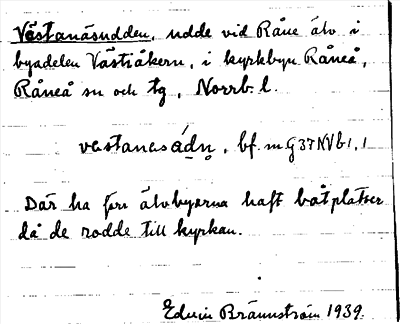 Västanäsudden, udde vid Råne älv i
byadelen Västiåkern, i kyrkbyn Råneå,
Råneå sn och tg, Norrb. l.
vestanasádn, bf. m G 37 NV b 1, 1
Där ha förr älvbyarna haft båtplatser
då de rodde till kyrkan.
Edvin Brännström 1939.